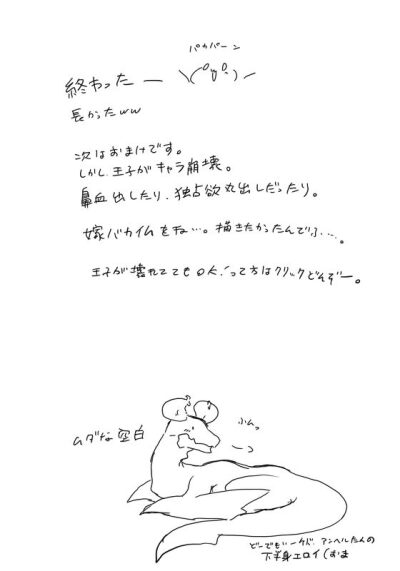 パカパーン
終わったー ＼(^o^)／
長かったww
次はおまけです。
しかし、王子がキャラ崩壊。
鼻血出したり、独占欲丸出しだったり。
嫁バカイムをね…。描きたかったんでふ…。
王子が壊れててもOK!って方はクリックどんぞー。
ムダな空白
ふムっ
どーでもいーケド、アンヘルたんの
下半身エロイしおま